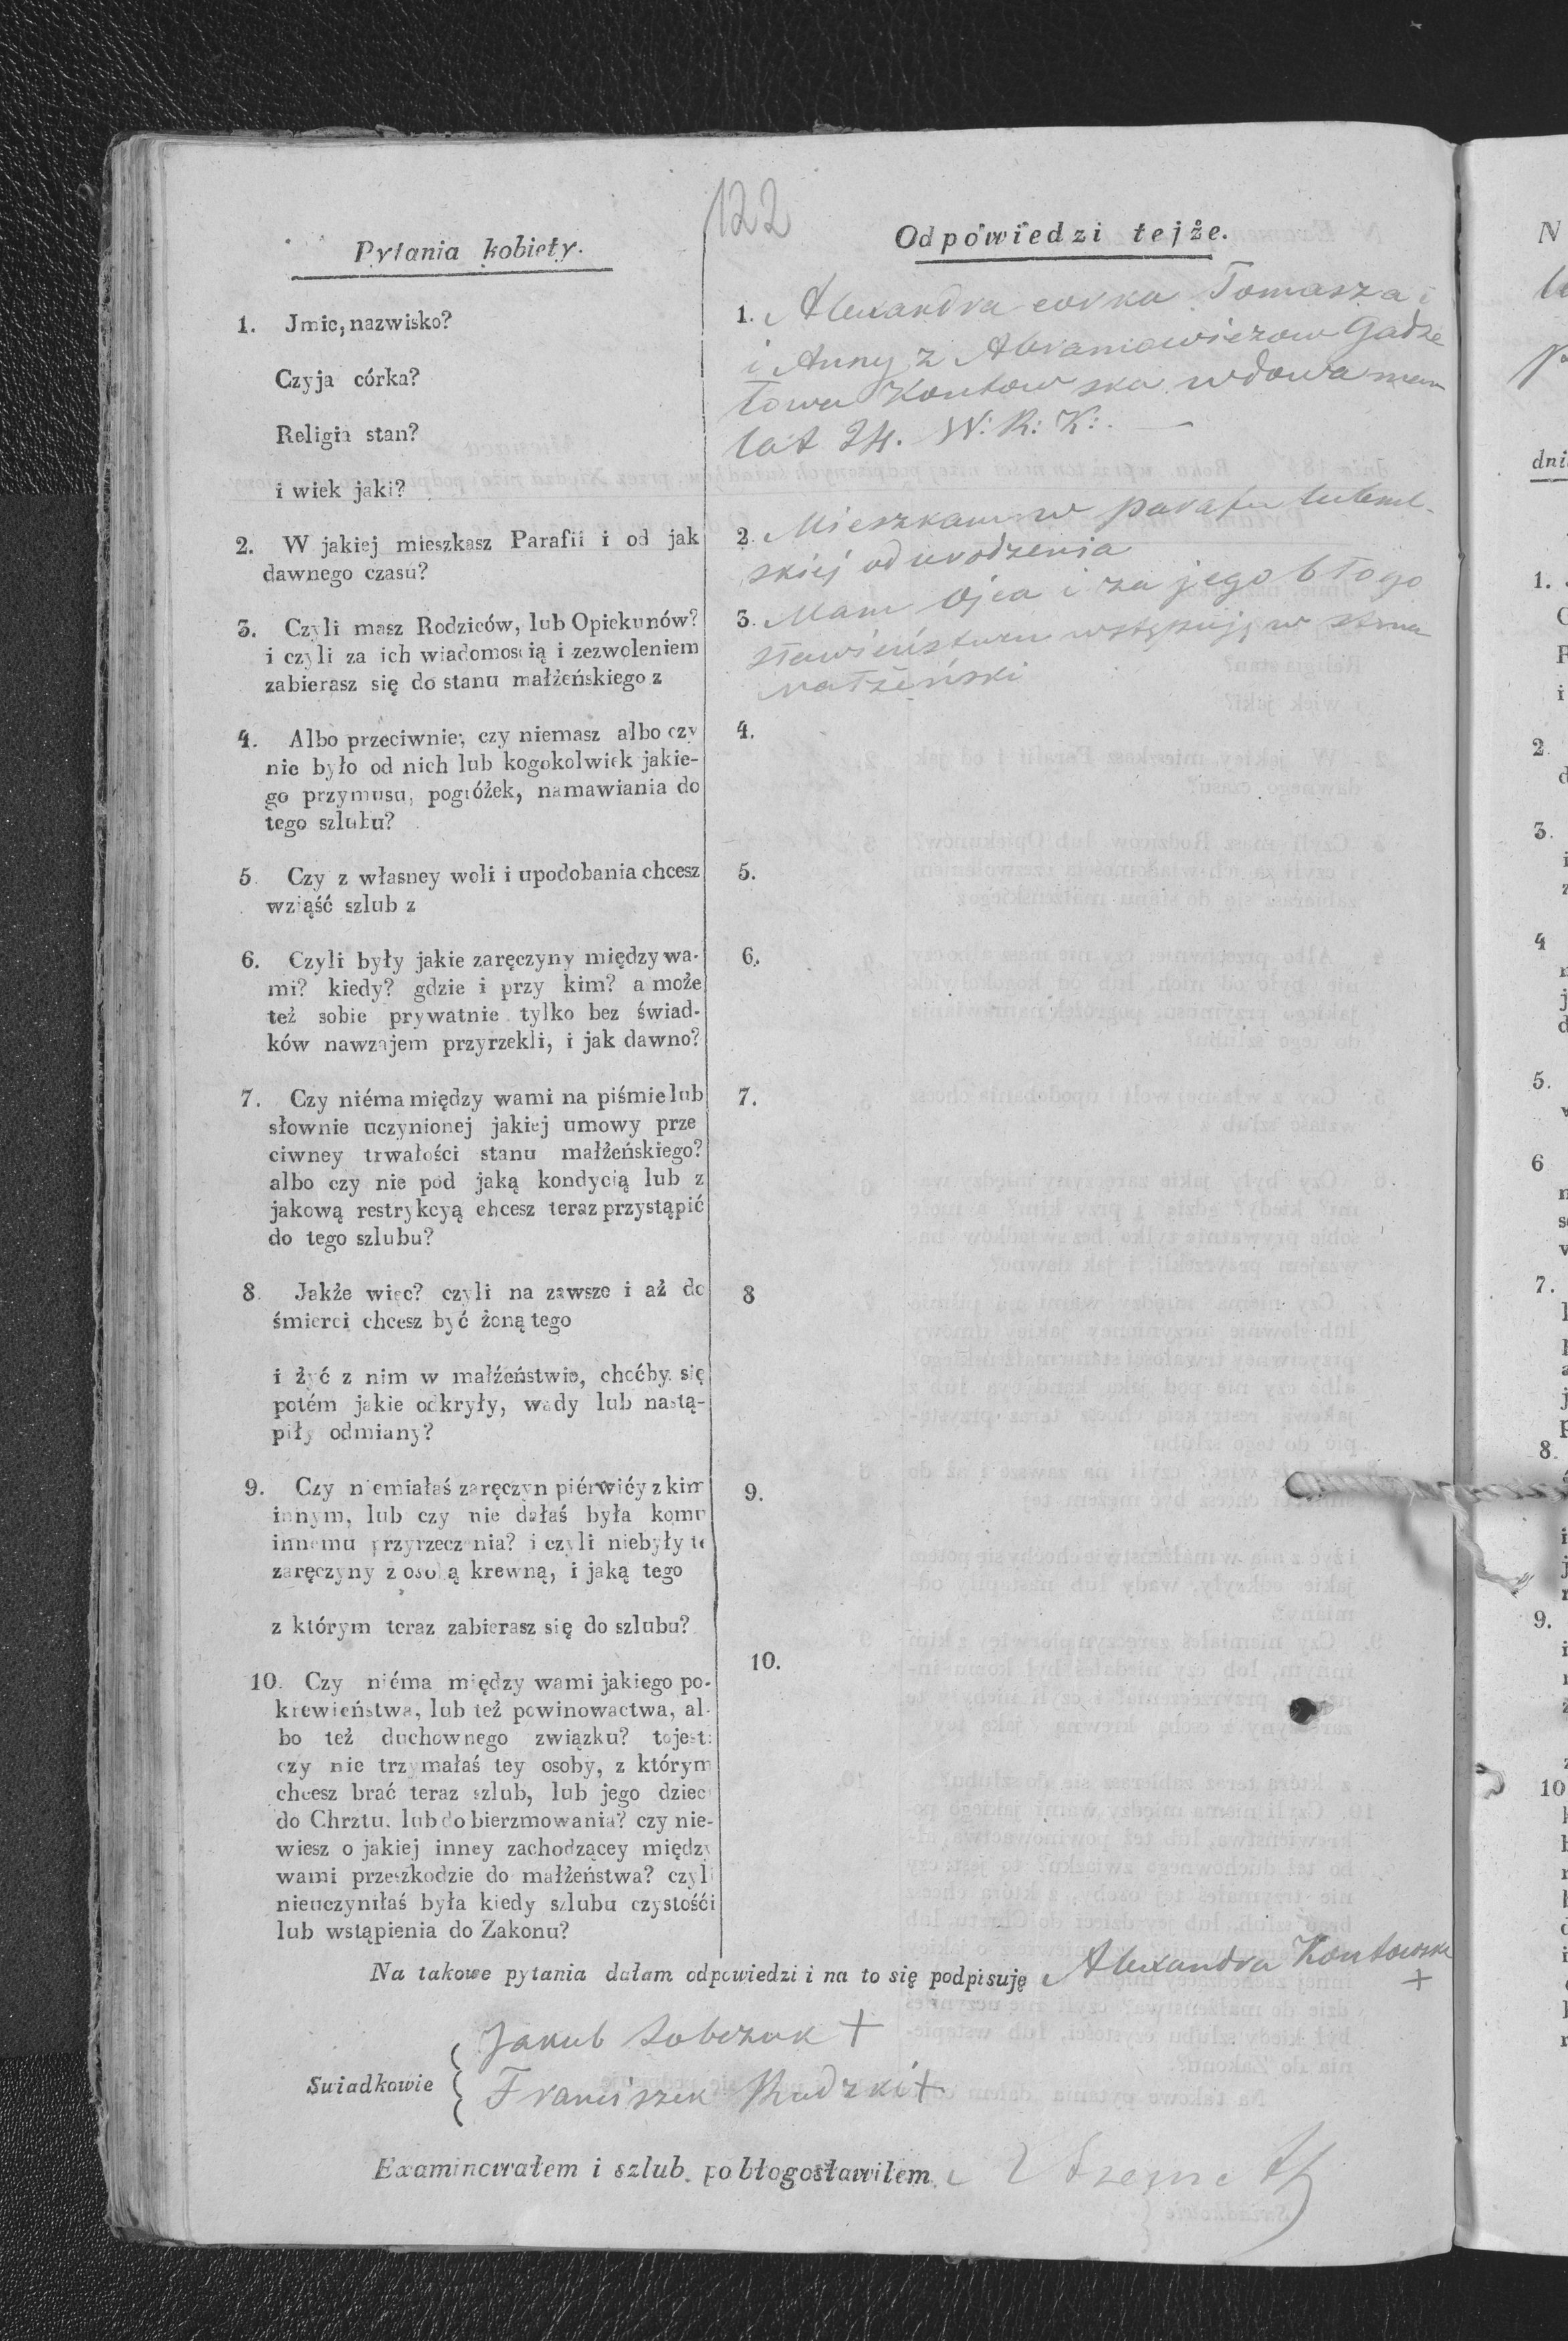 122
Pytania kobiety.
1. Jmie, nazwisko?
Czyja córka?
Religia stan?
i wiek jaki?
2. W jakiej mieszkasz Parafii i od jak
dawnego czasu?
3. Czyli masz Rodziców, lub Opiekunów?
i czyli za ich wiadomością i zezwoleniem
zabierasz się do stanu małżeńskiego z
4. Albo przeciwnie; czy niemasz albo czy
nie było od nich lub kogokolwiek jakie-
go przymusu, pogróżek, namawiania do
tego szlubu?
5 Czy z własney woli i upodobania chcesz
wziąść szlub z
6. Czyli były jakie zaręczyny między wa-
mi? kiedy? gdzie i przy kim? a może
też sobie prywatnie tylko bez świad-
ków nawzajem przyrzekli, i jak dawno?
7. Czy niéma między wami na piśmie lub
słownie uczynionej jakiej umowy prze
ciwney trwałości stanu małżeńskiego?
albo czy nie pod jaką kondycią lub z
jakową restrykcyą chcesz teraz przystąpić
do tego szlubu?
8. Jakże więc? czyli na zawsze i aż do
śmierci chcesz być żoną tego
i żyć z nim w małżeństwie, choćby się
potém jakie odkryły, wady lub nastą-
piły odmiany?
9. Czy niemiałaś zaręczyn piérwiéy z kim
innym, lub czy nie dałaś była komu
innemu przyrzeczenia? i czyli niebyły te
zaręczyny z osobą krewną, i jaką tego
z którym teraz zabierasz się do szlubu?
10. Czy niéma między wami jakiego po-
krewieństwa, lub też powinowactwa, al-
bo też duchownego związku? to jest:
czy nie trzymałaś tey osoby, z którym
chcesz brać teraz szlub, lub jego dzieci
do Chrztu, lub do bierzmowania? czy nie-
wiesz o jakiej inney zachodzącey między
wami przeszkodzie do małżeństwa? czyli
nieuczyniłaś była kiedy szlubu czystośći
lub wstąpienia do Zakonu?
Odpowiedzi tejże.
1. Alexandra corka Tomasza i
i Anny z Abramowiczow Gadze
łowa Kontowska wdowa mam
lat 24. W: R: K:. —
2. Mieszkam w parafii lubel-
skiej od urodzenia
3. Mam Ojca i za jego błogo
sławieństwem wstępuję w stan
małżeński
4.
5.
6.
7.
8
9.
10.
Na takowe pytania dałam odpowiedzi i na to się podpisuję Alexandra Kontowska
+
Swiadkowie
Jakub Sobczuk +
Franciszek Rudzki +
Examinowałem i szlub pobłogosławiłem